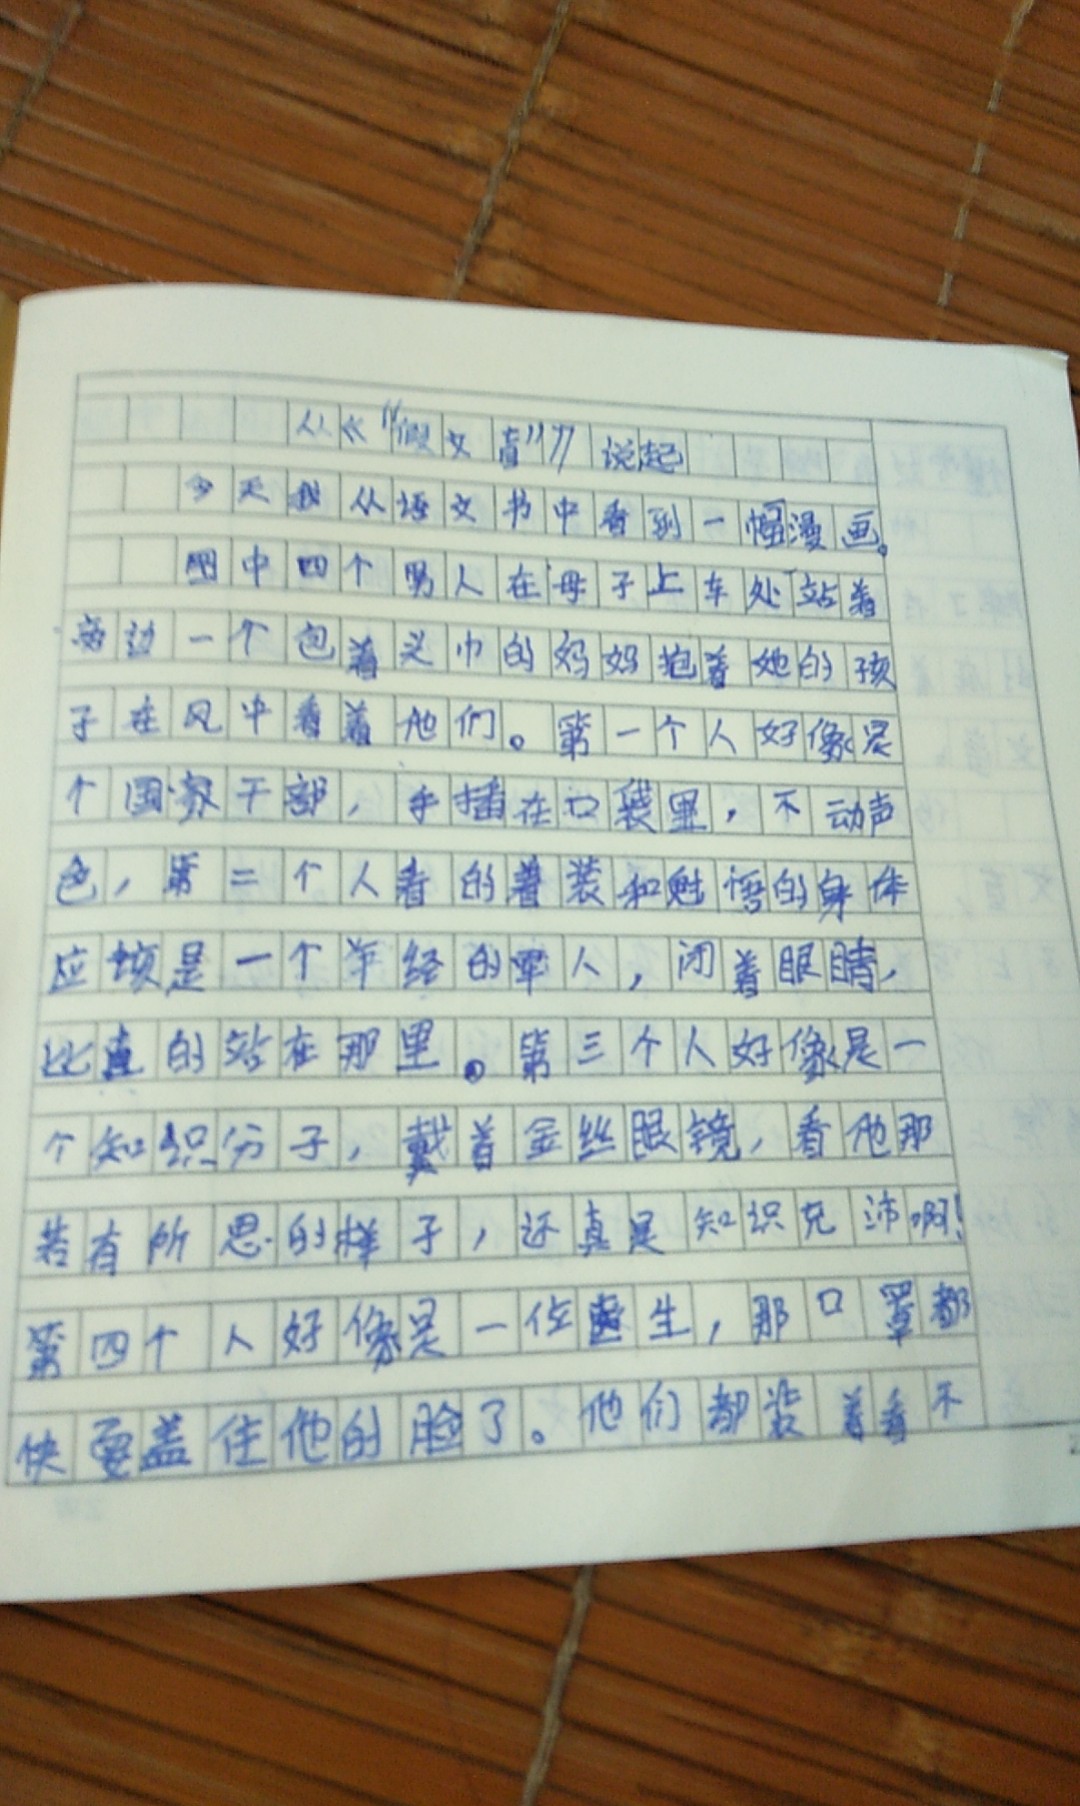 从《“假文盲”》说起
今天我从语文书中看到一幅漫画。
图中四个男人在母子上车处站着
旁边一个包着头巾的妈妈抱着她的孩
子在风中看着他们。第一个人好像是
个国家干部，手插在口袋里，不动声
色，第二个人看的着装和魁梧的身体
应该是一个年经的军人，闭着眼睛，
比直的站在那里。第三个人好像是一
个知识分子，戴着金丝眼镜，看他那
若有所思的样子，还真是知识充沛啊！
第四个人好像是一位医生，那口罩都
快要盖住他的脸了。他们都装着看不